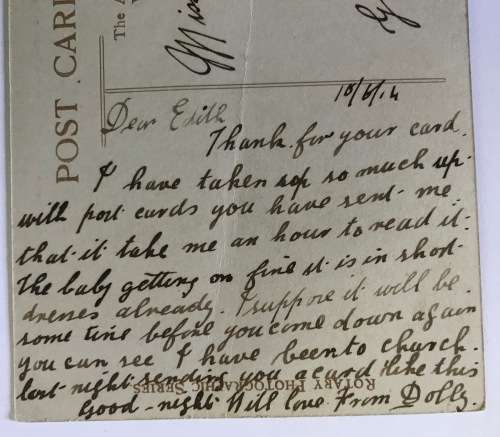 POST CARD
The A
Miss
G
18/6/14
Dear Edith
Thank for your card.
I have taken sop so much up
with post cards you have sent me
that it take me an hour to read it.
the baby getting on fine it is in short
dresses already. I suppose it will be
some time before you come down again
you can see I have been to church
last night sending you a card like this
ROTARY PHOTOGRAPHIC SERIES
Good-night With love From Dolly.